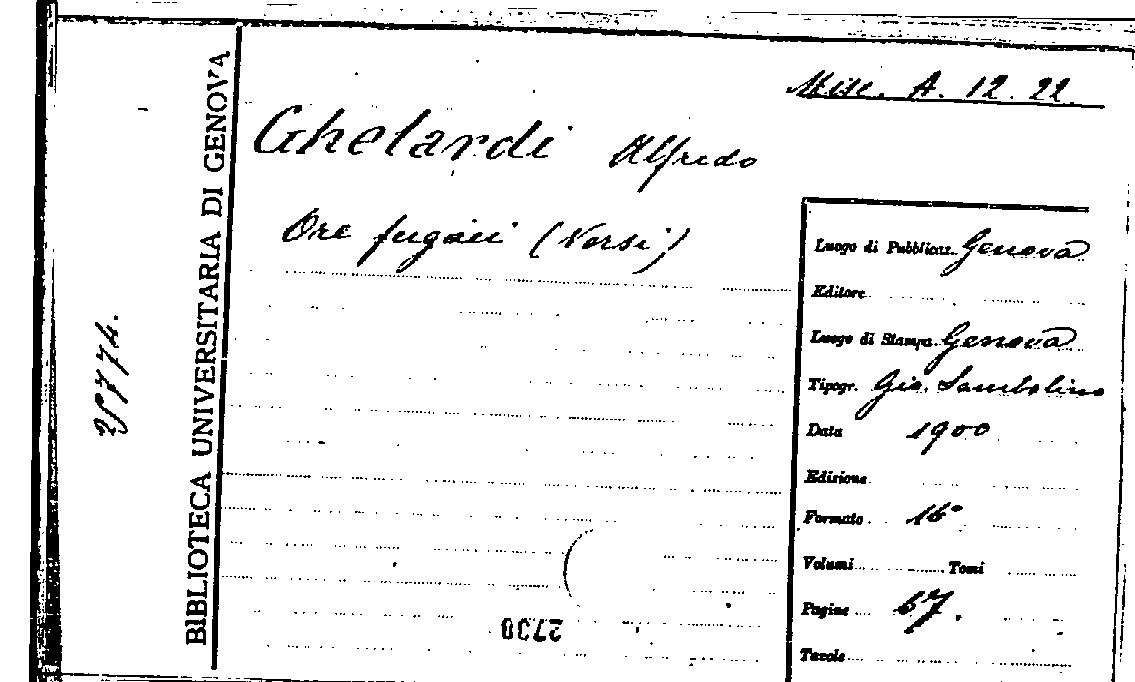 Misc. A. 12. 22.
Ghelardi Alfredo
Ore fugaci (Versi)
BIBLIOTECA UNIVERSITARIA DI GENOVA
25774.
Luogo di Pubblicaz. Genova
Editore
Luogo di Stampa Genova
Tipogr. Gio. Sambolino
Data 1900
Edizione
Formato 16°
Volumi Tomi
Pagine 57.
Tavole
2730